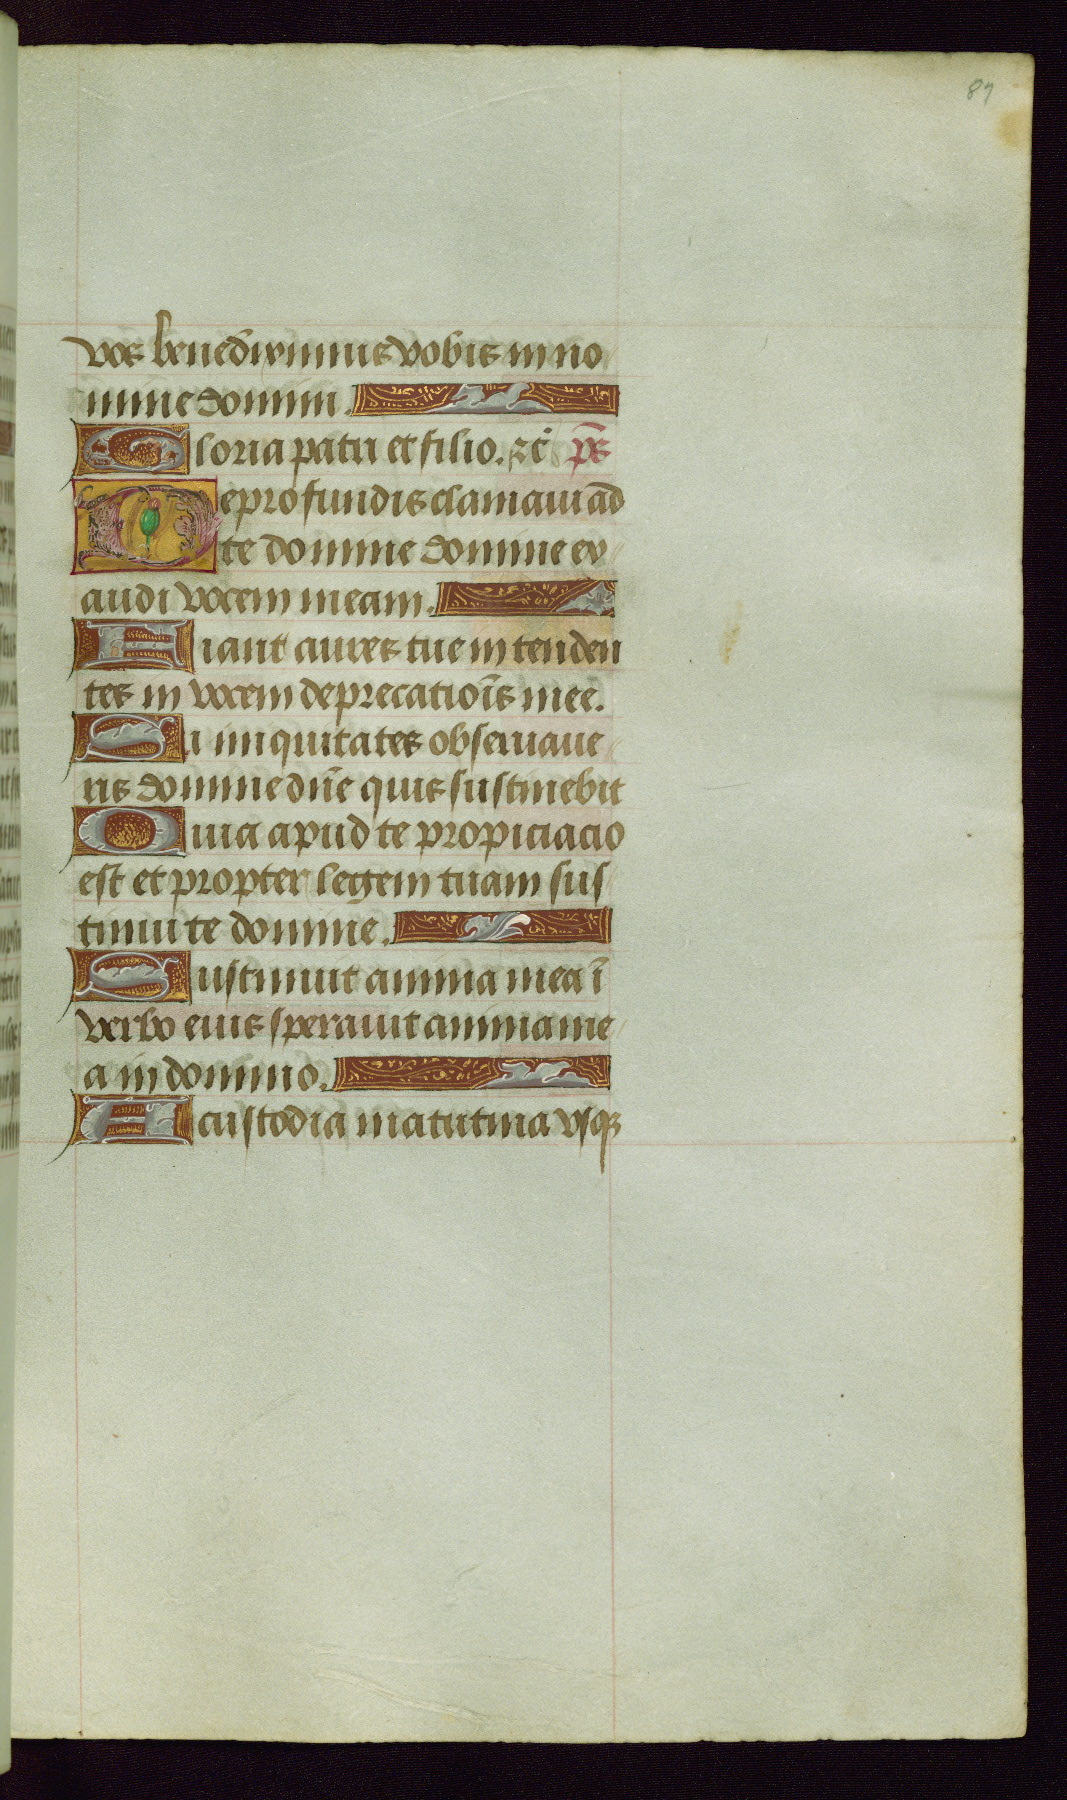 87
vos benediximus vobis in no
mine domini.
Gloria patri et filio. zc̄ ps̄
De profundis clamaui ad
te domine domine ex
audi vocem meam.
Fiant aures tue in tenden
tes in vocem deprecatiōis mee.
Si iniquitates obseruaue
ris domine dn̄e quis sustinebit
Quia apud te propiciacio
est et propter legem tuam sus
tinui te domine.
Sustinuit anima mea ī
verbo eius sperauit anima me
a in domino.
A custodia matutina vsqꝫ